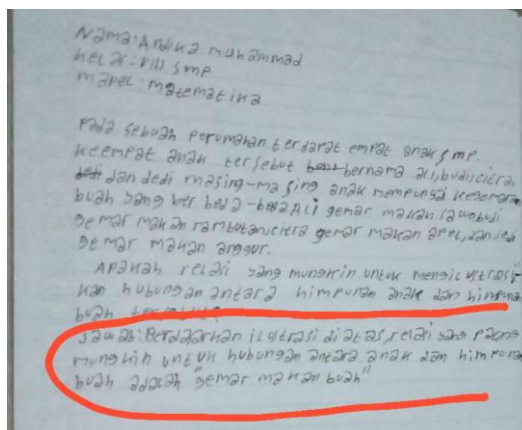 Nama: Andika Muhammad
Kelas: VIII SMP
Mapel: Matematika
Pada sebuah perumahan terdapat empat anak smp.
Keempat anak tersebut bernama ali, budi, citra,
dan dedi masing-masing anak mempunyai kegemaran
buah yang berbeda-beda Ali gemar makan sawo, budi
gemar makan rambutan, citra gemar makan apel, dan dedi
gemar makan anggur.
Apakah relasi yang mungkin untuk mengilustrasi-
kan hubungan antara himpunan anak dan himpuna
buah tersebut?
Jawab: Berdasarkan ilustrasi diatas, relasi yang paling
mungkin untuk hubungan antara anak dan himpuna
buah adalah "gemar makan buah"